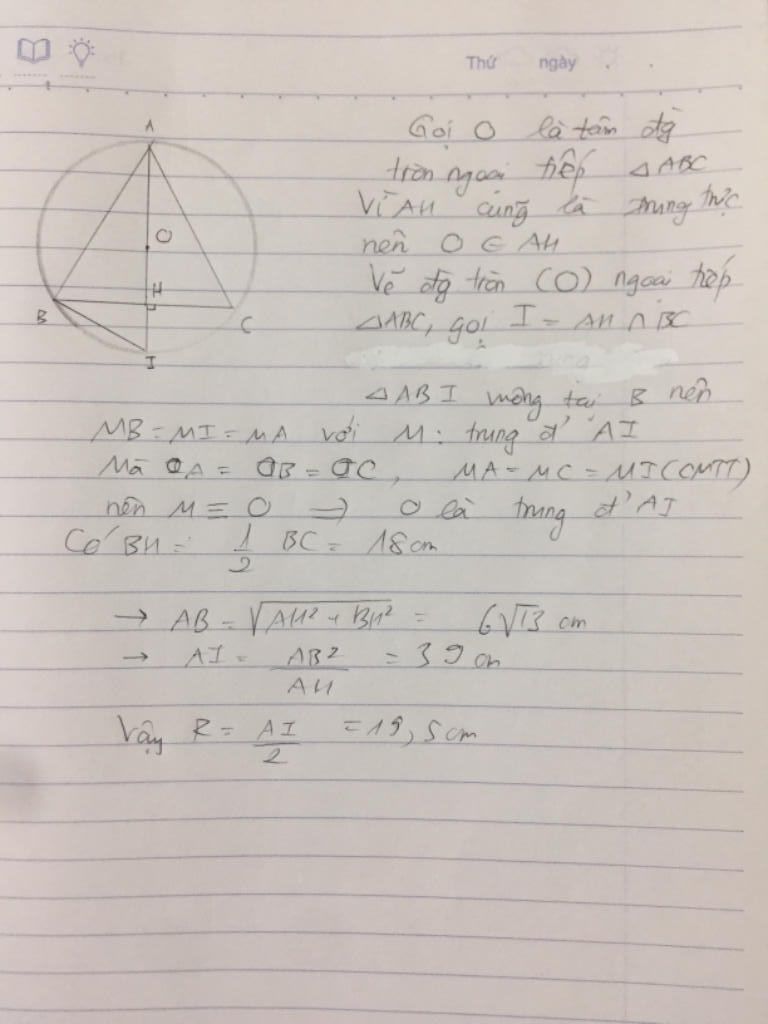 Thứ ngày
A
O
H
B
C
I
Gọi O là tâm đg
tròn ngoại tiếp △ABC
Vì AH cũng là trung trực
nên O ∈ AH
Vẽ đg tròn (O) ngoại tiếp
△ABC, gọi I = AH ∩ BC
△ABI vuông tại B nên
MB = MI = MA với M : trung đ' AI
Mà OA = OB = OC, MA = MC = MI (CMTT)
nên M ≡ O ⇒ O là trung đ' AI
Có BH = 1/2 BC = 18 cm
→ AB = √(AH² + BH²) = 6√13 cm
→ AI = AB²/AH = 39 cm
Vậy R = AI/2 = 19,5 cm